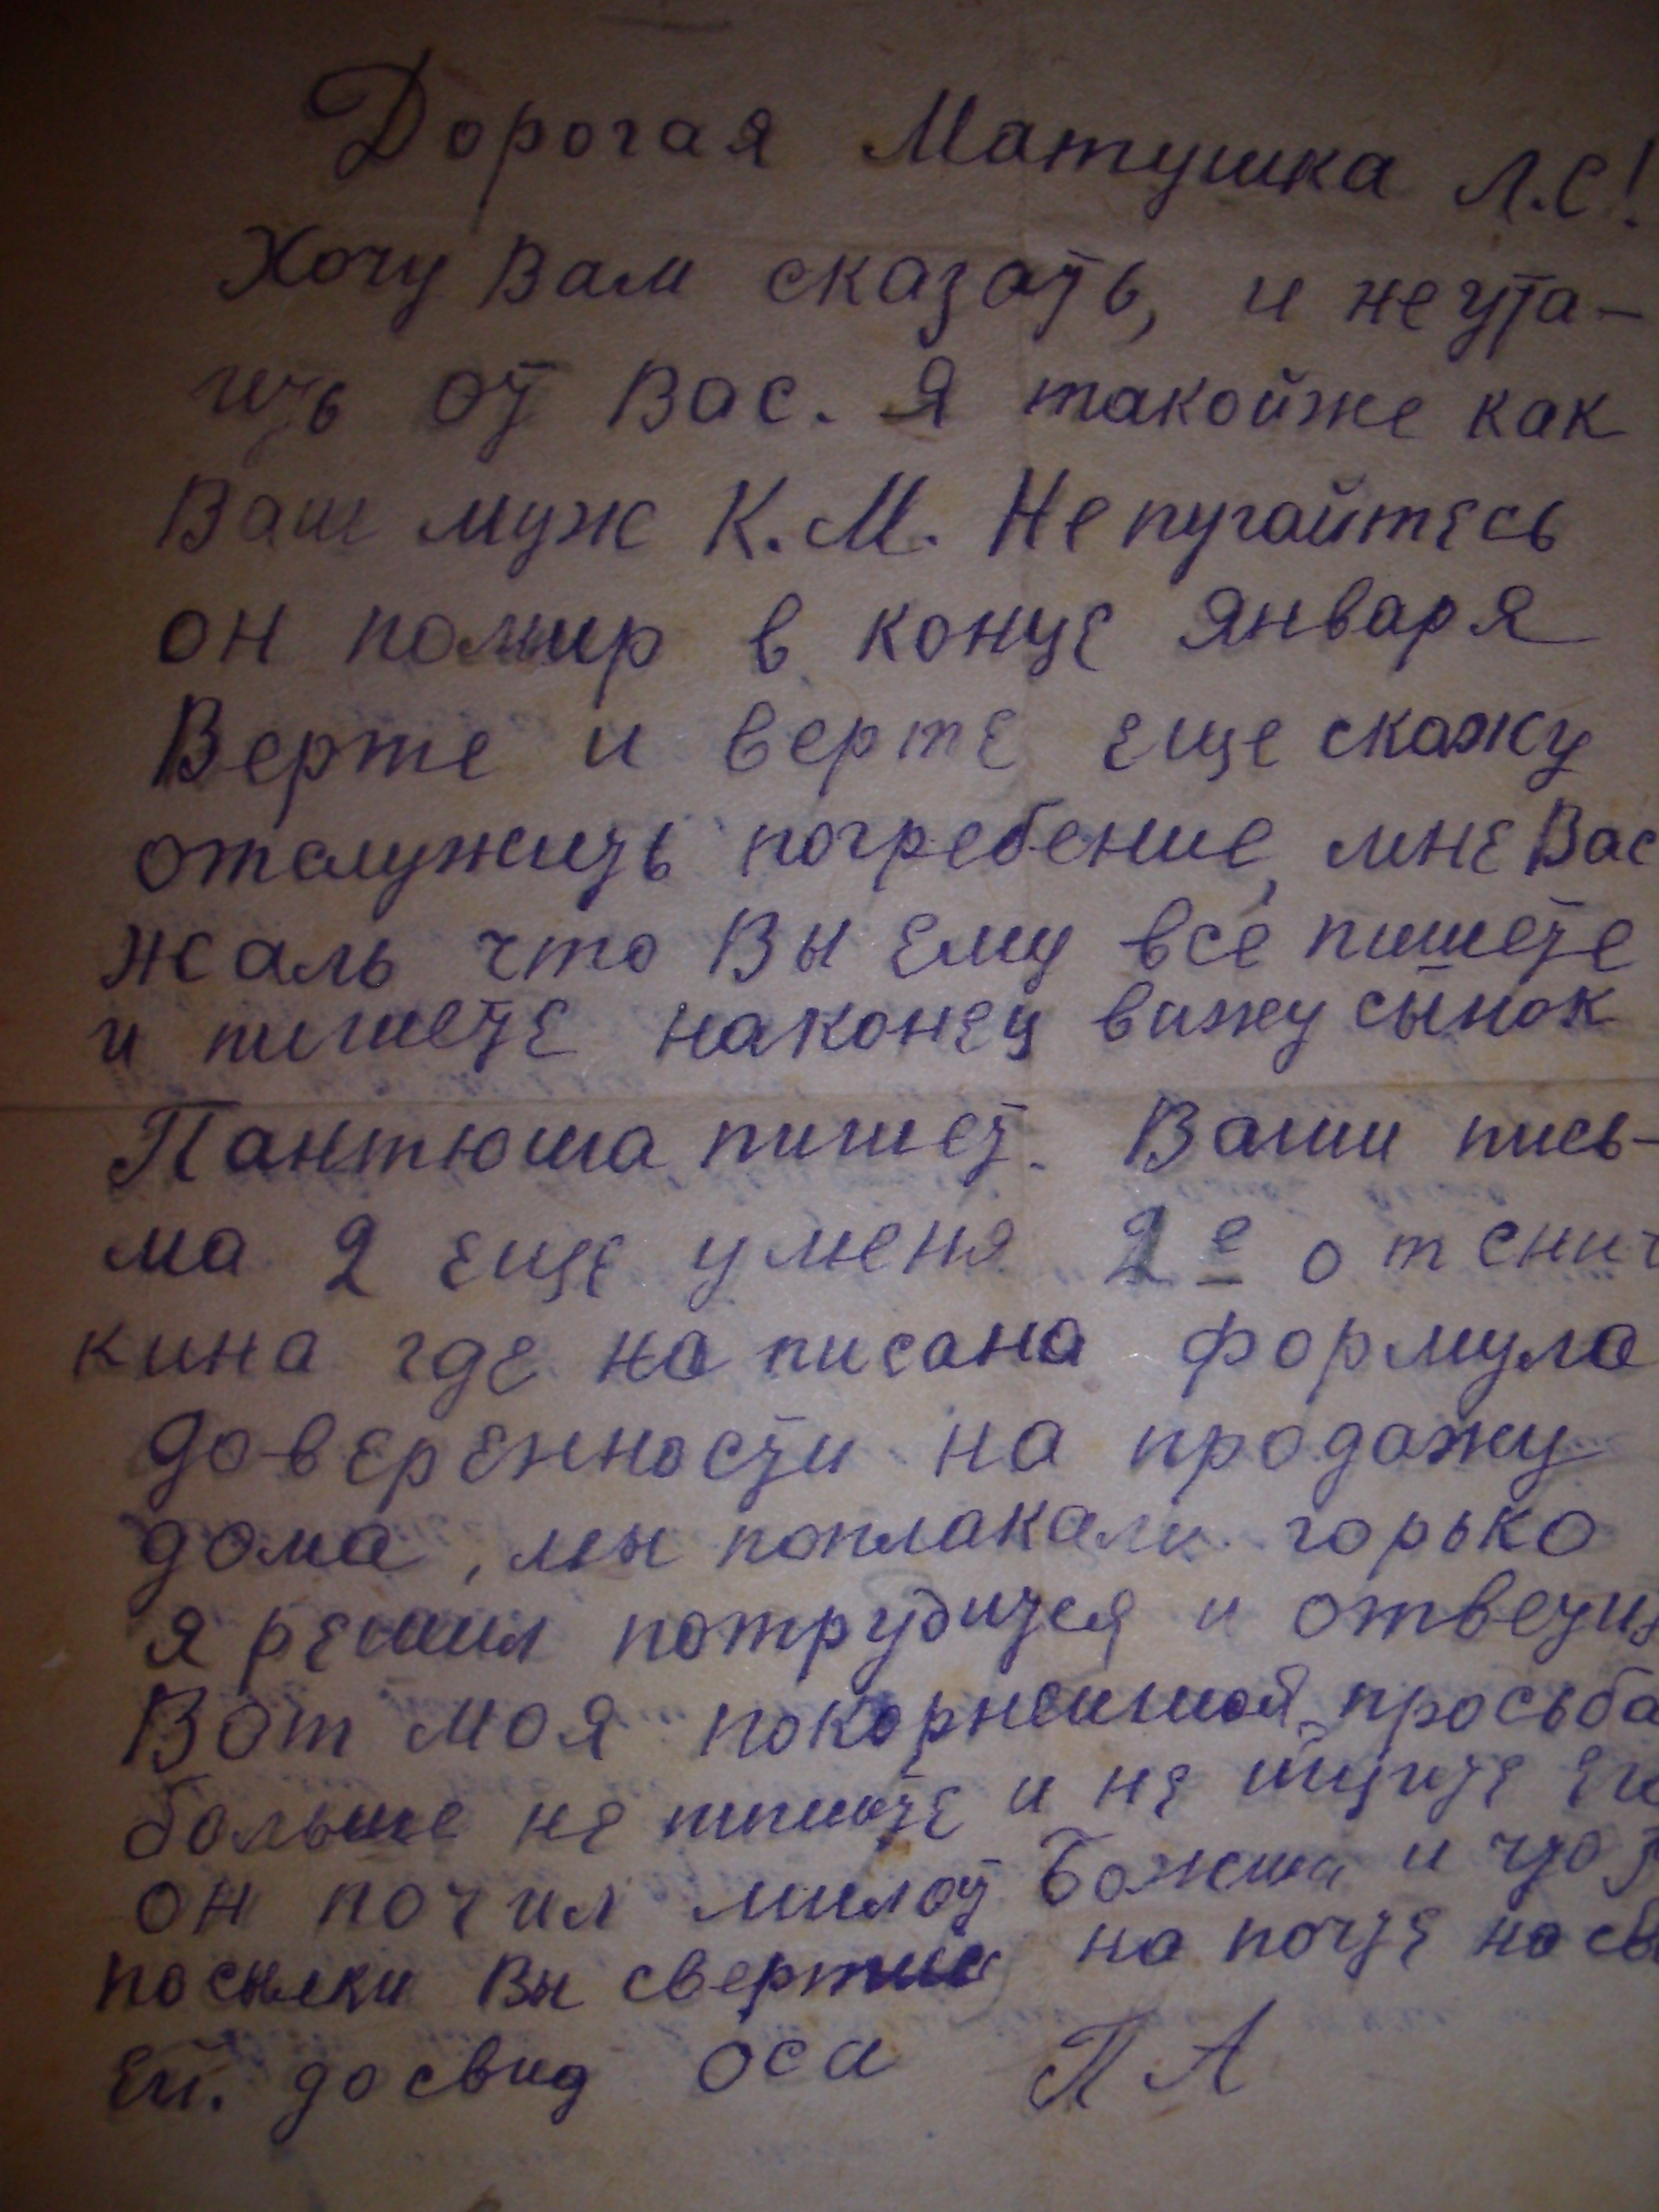 Дорогая Матушка Л.С!
Хочу Вам сказать, и не ута-
ить от Вас. Я такойже как
Ваш муж К.М. Не пугайтесь
он помир в конце января
Верте и верте еще скажу
отслужить погребение, мне Вас
жаль что Вы ему все пишете
и пишете наконец вижу сынок
Пантюша пишет. Ваши пись-
ма 2 еще у меня 2е от
кина где написана формула
доверенности на продажу
дома, мы поплакали горько
я решил потрудится и
Вот моя покорнейшая просьба
больше не пишите и не ищите
он почил милот Божия и что
посылки Вы на почте
досвид оса ПА